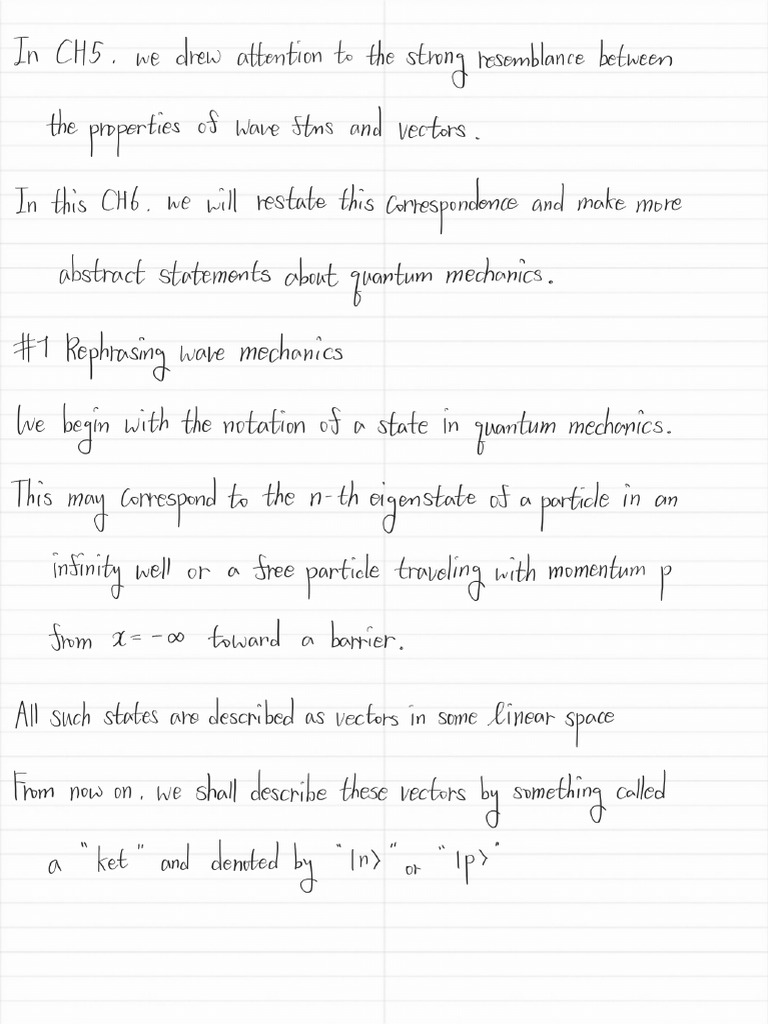 In CH5. we drew attention to the strong resemblance between
the properties of wave ftns and vectors.
In this CH6. we will restate this correspondence and make more
abstract statements about quantum mechanics.
#1 Rephrasing wave mechanics
We begin with the notation of a state in quantum mechanics.
This may correspond to the n-th eigenstate of a particle in an
infinity well or a free particle traveling with momentum p
from x = -∞ toward a barrier.
All such states are described as vectors in some linear space
From now on, we shall describe these vectors by something called
a "ket" and denoted by "|n⟩" or "|p⟩"